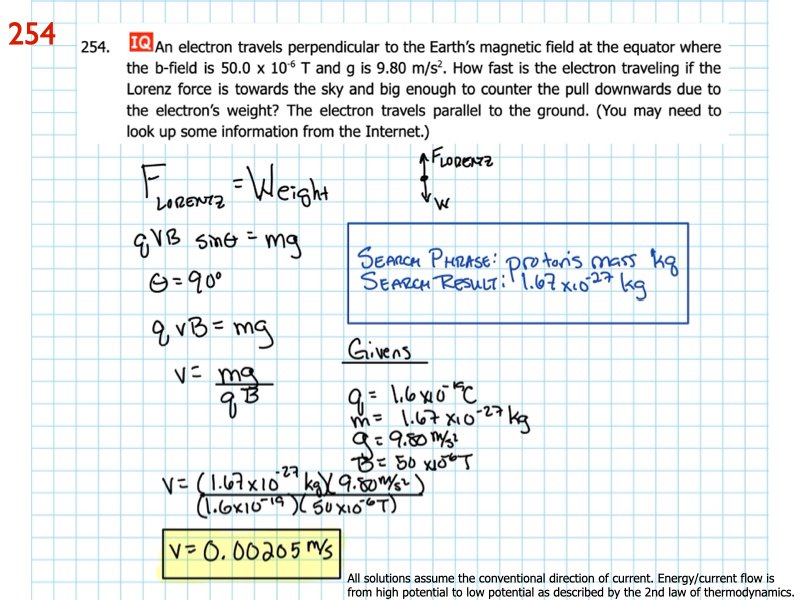 254
254. IQ An electron travels perpendicular to the Earth's magnetic field at the equator where
the b-field is 50.0 x 10⁻⁶ T and g is 9.80 m/s². How fast is the electron traveling if the
Lorenz force is towards the sky and big enough to counter the pull downwards due to
the electron's weight? The electron travels parallel to the ground. (You may need to
look up some information from the Internet.)
F LORENTZ = Weight
FLORENTZ
W
qVB sinθ = mg
θ = 90°
SEARCH PHRASE: proton's mass kg
SEARCH RESULT: 1.67 x10⁻²⁷ kg
qvB = mg
v = mg
qB
Givens
q = 1.6 x10⁻¹⁹C
m = 1.67 x10⁻²⁷ kg
g = 9.80 m/s²
B = 50 x10⁻⁶T
v = (1.67x10⁻²⁷ kg)(9.80 m/s²)
(1.6x10⁻¹⁹)(50x10⁻⁶T)
v = 0.00205 m/s
All solutions assume the conventional direction of current. Energy/current flow is
from high potential to low potential as described by the 2nd law of thermodynamics.